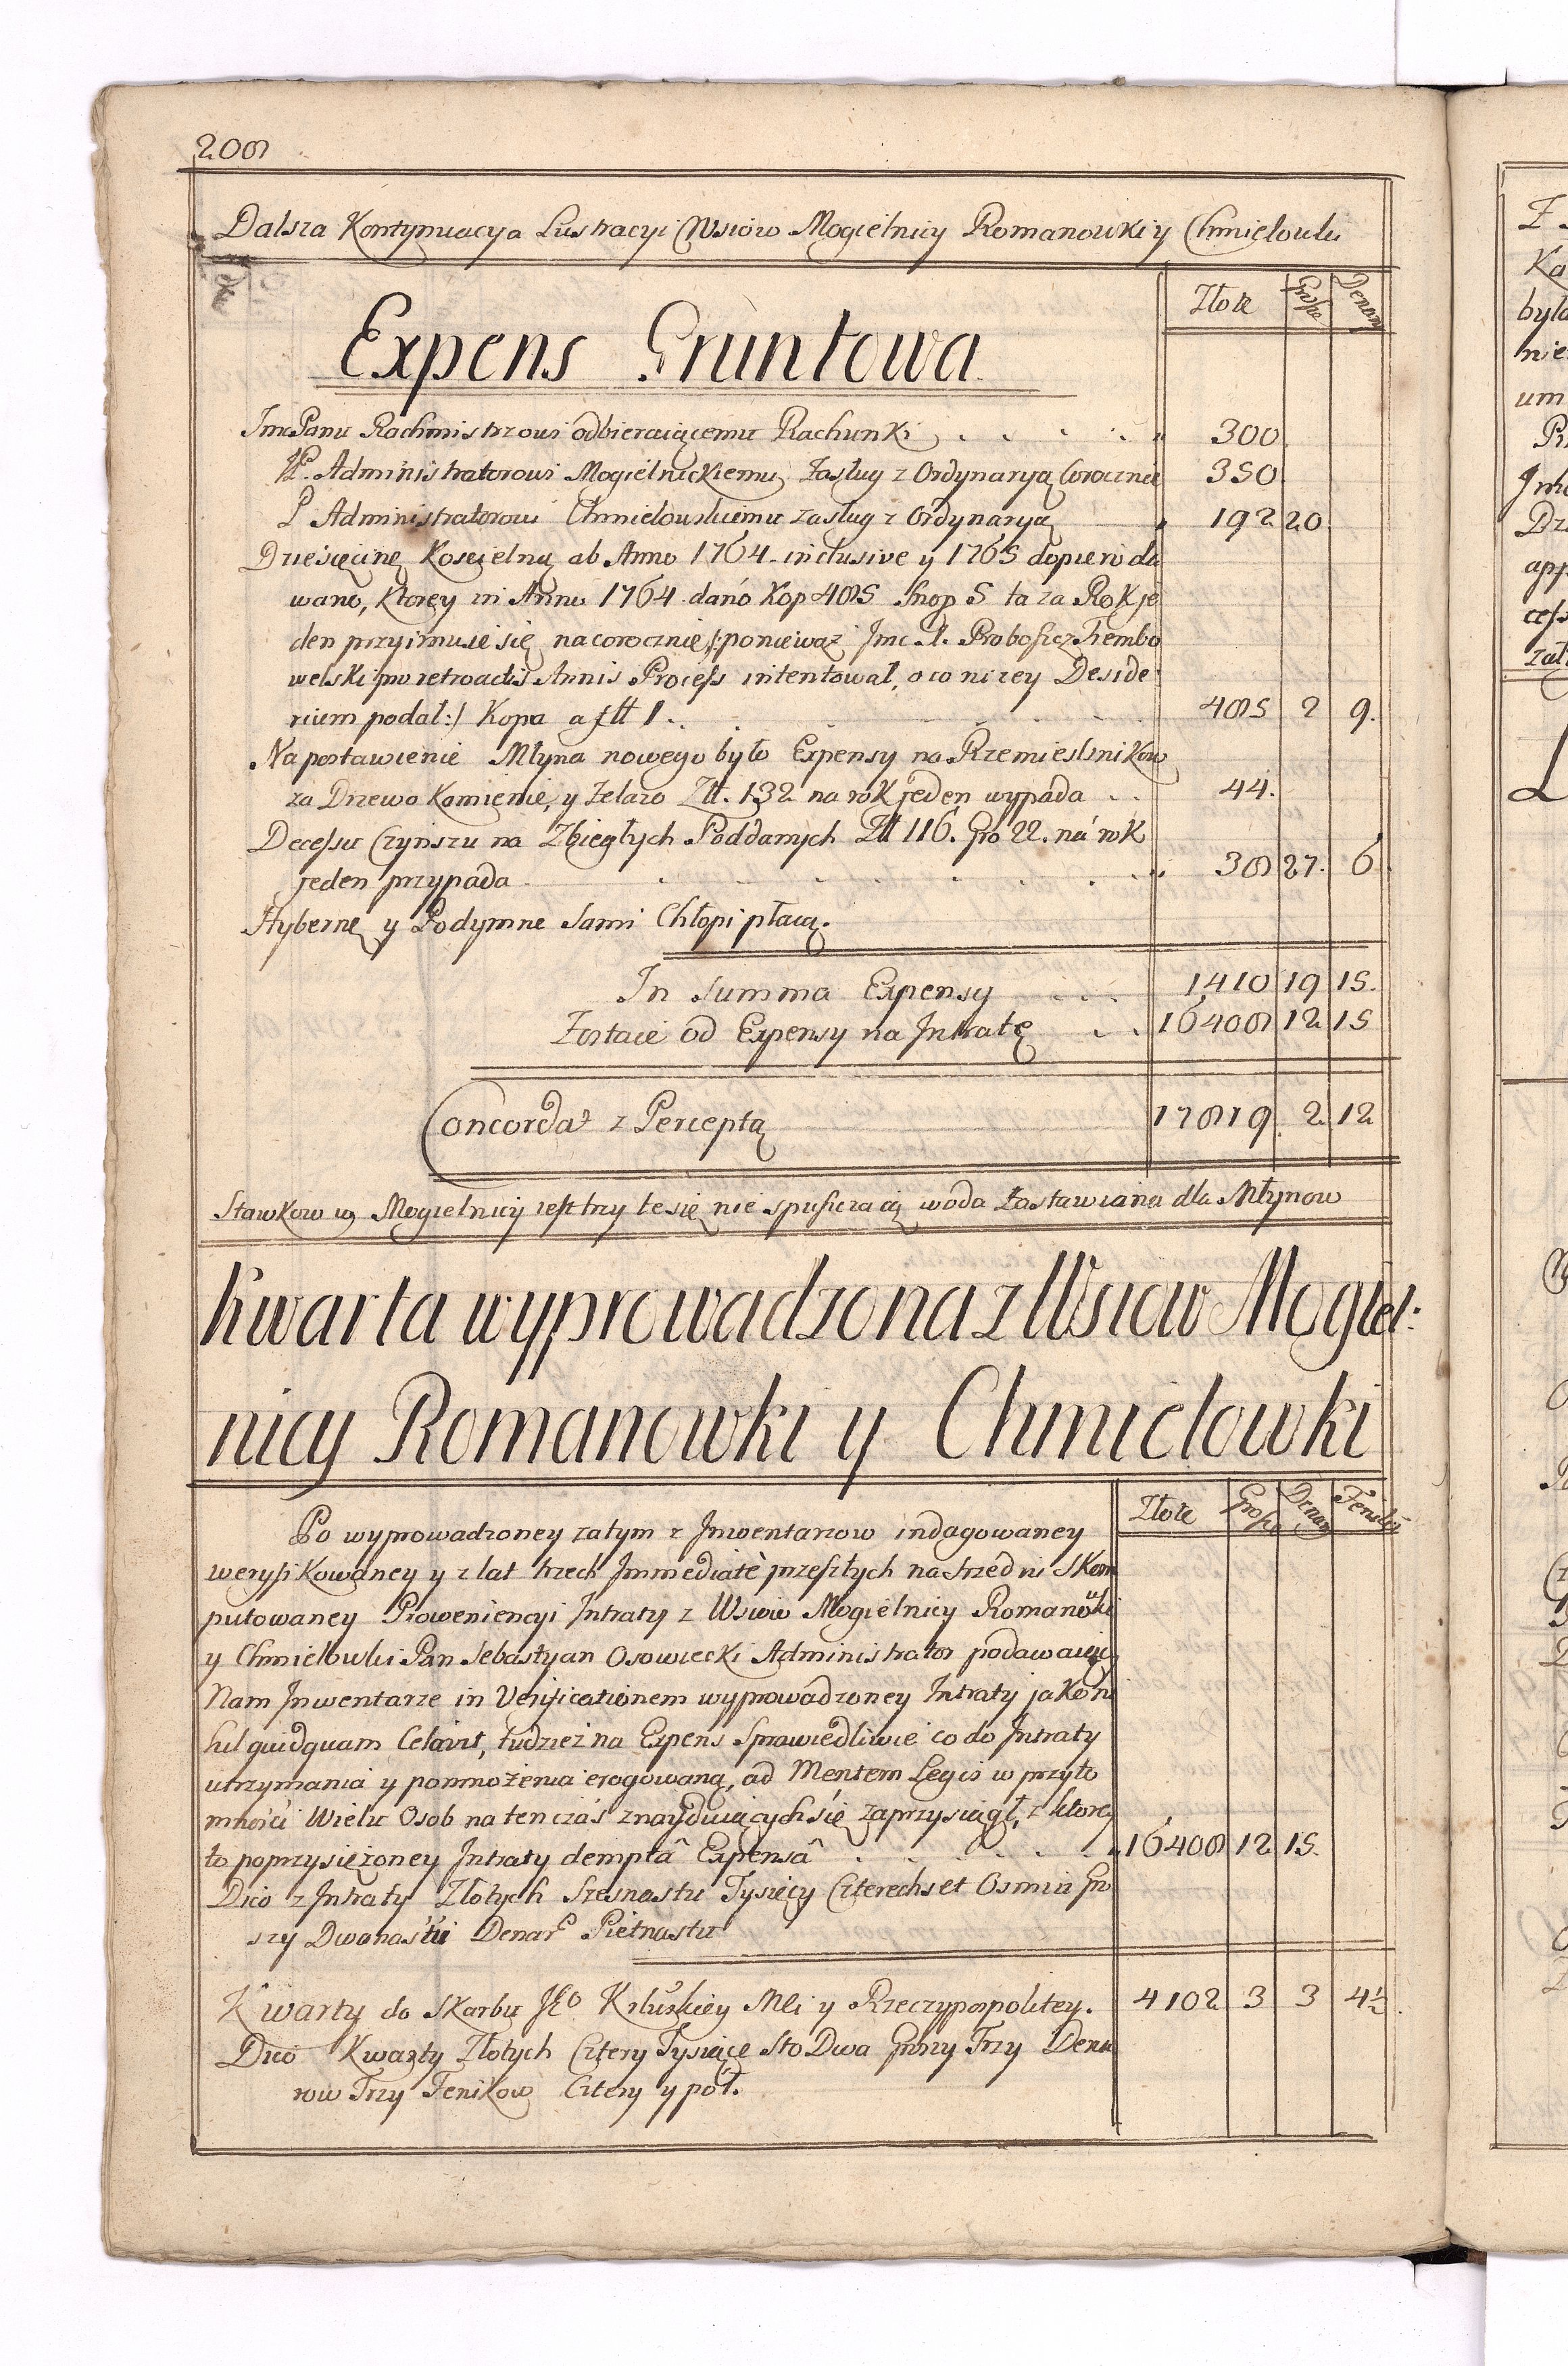 208
Dalsza Kontynuacya Lustracyi Wsiow Mogielnicy Romanowki y Chmielowki
Złote Grosze Denary
Expens Gruntowa
ImcPanu Rachmistrzowi odbieraiącemu Rachunki . . . . . 300
JP. Administratorowi Mogielnickiemu Zasług z Ordynaryą Corocznie 350
P Administratorowi Chmielowskiemu zasług z Ordynaryą 192 20
Dziesięcinę Koscielną ab Anno 1764 inclusive y 1765 dopiero da
wano, Ktorey in Anno 1764 dano Kop 485 Snop 5 ta za Rok je
den przyimuie się na corocznie /: poniewaz Jmc X. Proboszcz Trembo
welski pro retroactis Annis Process intentował, o co nizey Deside
rium podał :/ Kopa a fłł 1 . . 485 2 9.
Na postawienie Młyna nowego było Expensy na Rzemieslnikow
za Drzewo Kamienie, y zelazo Złł. 132 na rok jeden wypada . . 44.
Decessu Czynszu na Zbiegłych Poddanych Złł 116. Gro 22. na rok
jeden przypada . . . . . . 38 27. 6.
Hybernę y Podymne Sami Chłopi płacą.
In Summa Expensy . . . 1410 19 15.
Zostaie od Expensy na Intratę . . 16408 12 15
Concordat z Perceptą 17819. 2. 12
Stawkow w Mogielnicy jest trzy te się nie spuszczaią woda Zastawiana dla Młynow
Kwarta wyprowadzona z Wsiow Mogiel:
nicy Romanowki y Chmielowki
Złote Grosze Denary Feniki
Po wyprowadzoney zatym z Inwentarzow indagowaney
weryfikowaney y z lat trzech Immediate przeszłych na Srzedni Skom
putowaney Proweniencyi Intraty z Wsiow Mogielnicy Romanowki
y Chmielowki Pan Sebastyan Osowiecki Administrator podawaiąc
Nam Inwentarze in Verificationem wyprowadzoney Intraty jako ni
hil quidquam Celavit, tudziez na Expens Sprawiedliwie co do Intraty
utrzymania y pomnożenia erogowaną, ad Mentem Legis w przyto
mnosci Wielu Osob na ten czas znayduiących się zaprzysiągł, z ktorey
to poprzysiężoney Intraty demptâ Expensâ . . . . . 16408 12 15.
Dico z Intraty Złotych Szesnastu Tysięcy Czterechset Osmiu Gro
szy Dwanastu Denar Pietnastu
Kwarty do Skarbu JKo Krlskiey Mci y Rzeczypospolitey. 4102 3 3 4½.
Dico Kwarty Złotych Cztery Tysiące Sto Dwa Groszy Trzy Dena
row Trzy Fenikow Cztery y poł.